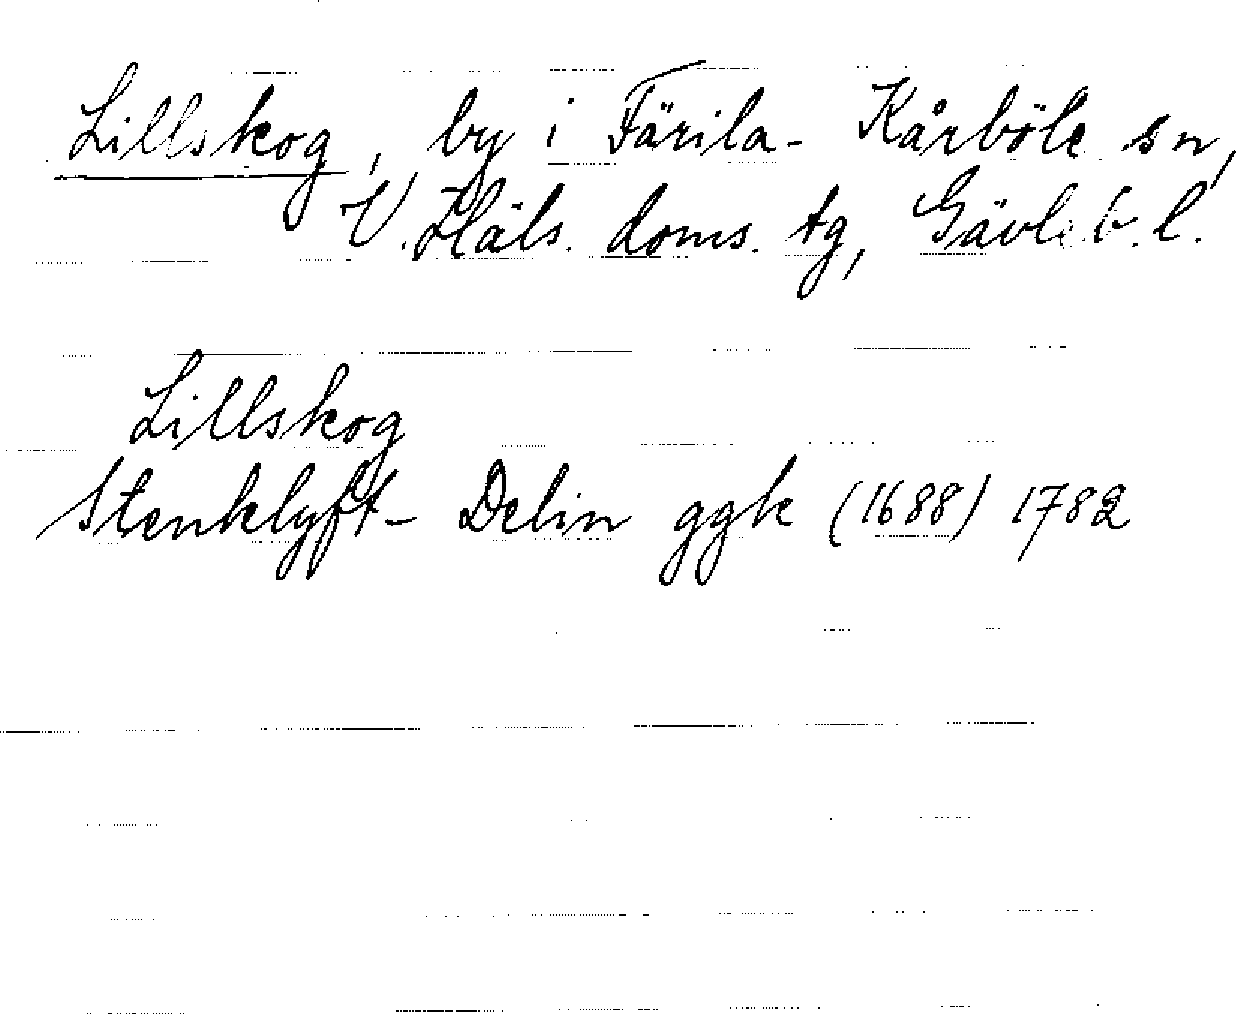 Lillskog, by i Färila-Kårböle sn,
V. Häls. doms. tg, Gävleb. l.
Lillskog
Stenklyft- Delin ggk (1688) 1782